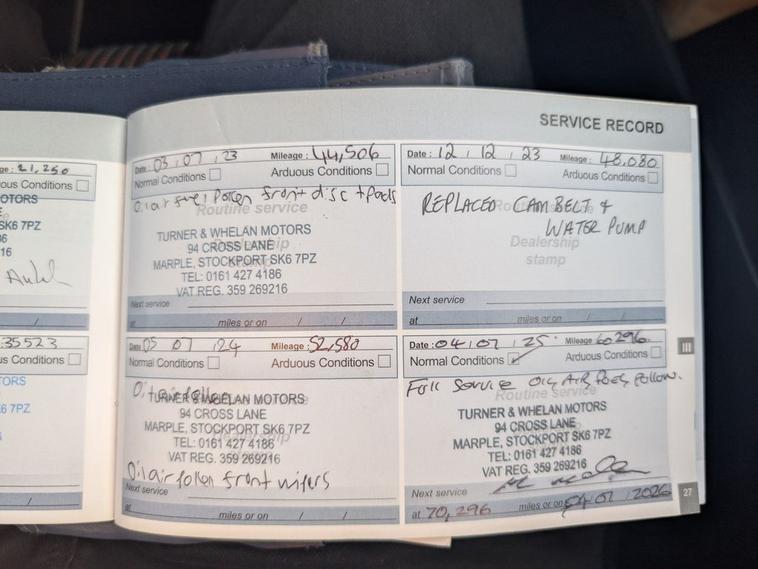 SERVICE RECORD
ge: 21,250
ous Conditions
OTORS
SK6 7PZ
6
16
35523
ous Conditions
TORS
6 7PZ
Date: 03 / 07 / 23 Mileage: 44,506
Normal Conditions Arduous Conditions
Oil air fuel Pollen front disc + pads
Routine service
TURNER & WHELAN MOTORS
94 CROSS LANE
MARPLE, STOCKPORT SK6 7PZ
TEL: 0161 427 4186
VAT REG. 359 269216
Next service
at miles or on / /
Date: 12 / 12 / 23 Mileage: 48,080
Normal Conditions Arduous Conditions
REPLACED CAM BELT &
WATER PUMP
Dealership
stamp
Next service
at miles or on / /
Date: 05 07 / 24 Mileage: 52,580
Normal Conditions Arduous Conditions
TURNER & WHELAN MOTORS
94 CROSS LANE
MARPLE, STOCKPORT SK6 7PZ
TEL: 0161 427 4186
VAT REG. 359 269216
Oil air pollen front wipers
Next service
at miles or on / /
Date: 04 / 07 / 25 Mileage 60,296
Normal Conditions Arduous Conditions
Full Service Oil Air Pollen.
Routine service
TURNER & WHELAN MOTORS
94 CROSS LANE
MARPLE, STOCKPORT SK6 7PZ
TEL: 0161 427 4186
VAT REG. 359 269216
Next service
at 70,296 miles or on 04 / 07 / 2026
III
27